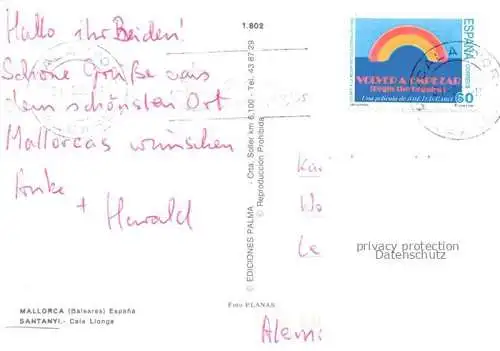 Hallo ihr Beiden!
Schöne Grüße aus
dem schönsten Ort
Mallorcas wünschen
Anke
+ Harald
MALLORCA (Baleares) España
SANTANYI.- Cala Llonga
1.802
© EDICIONES PALMA - Ctra. Soller km 6,100 - Tel. 43 87 29
© Reproducción Prohibida
Foto PLANAS
ESPAÑA
CORREOS
VOLVER A EMPEZAR
(Begin the Beguine)
Una película de JOSE LUIS GARCI
60
privacy protection
Datenschutz
Alem